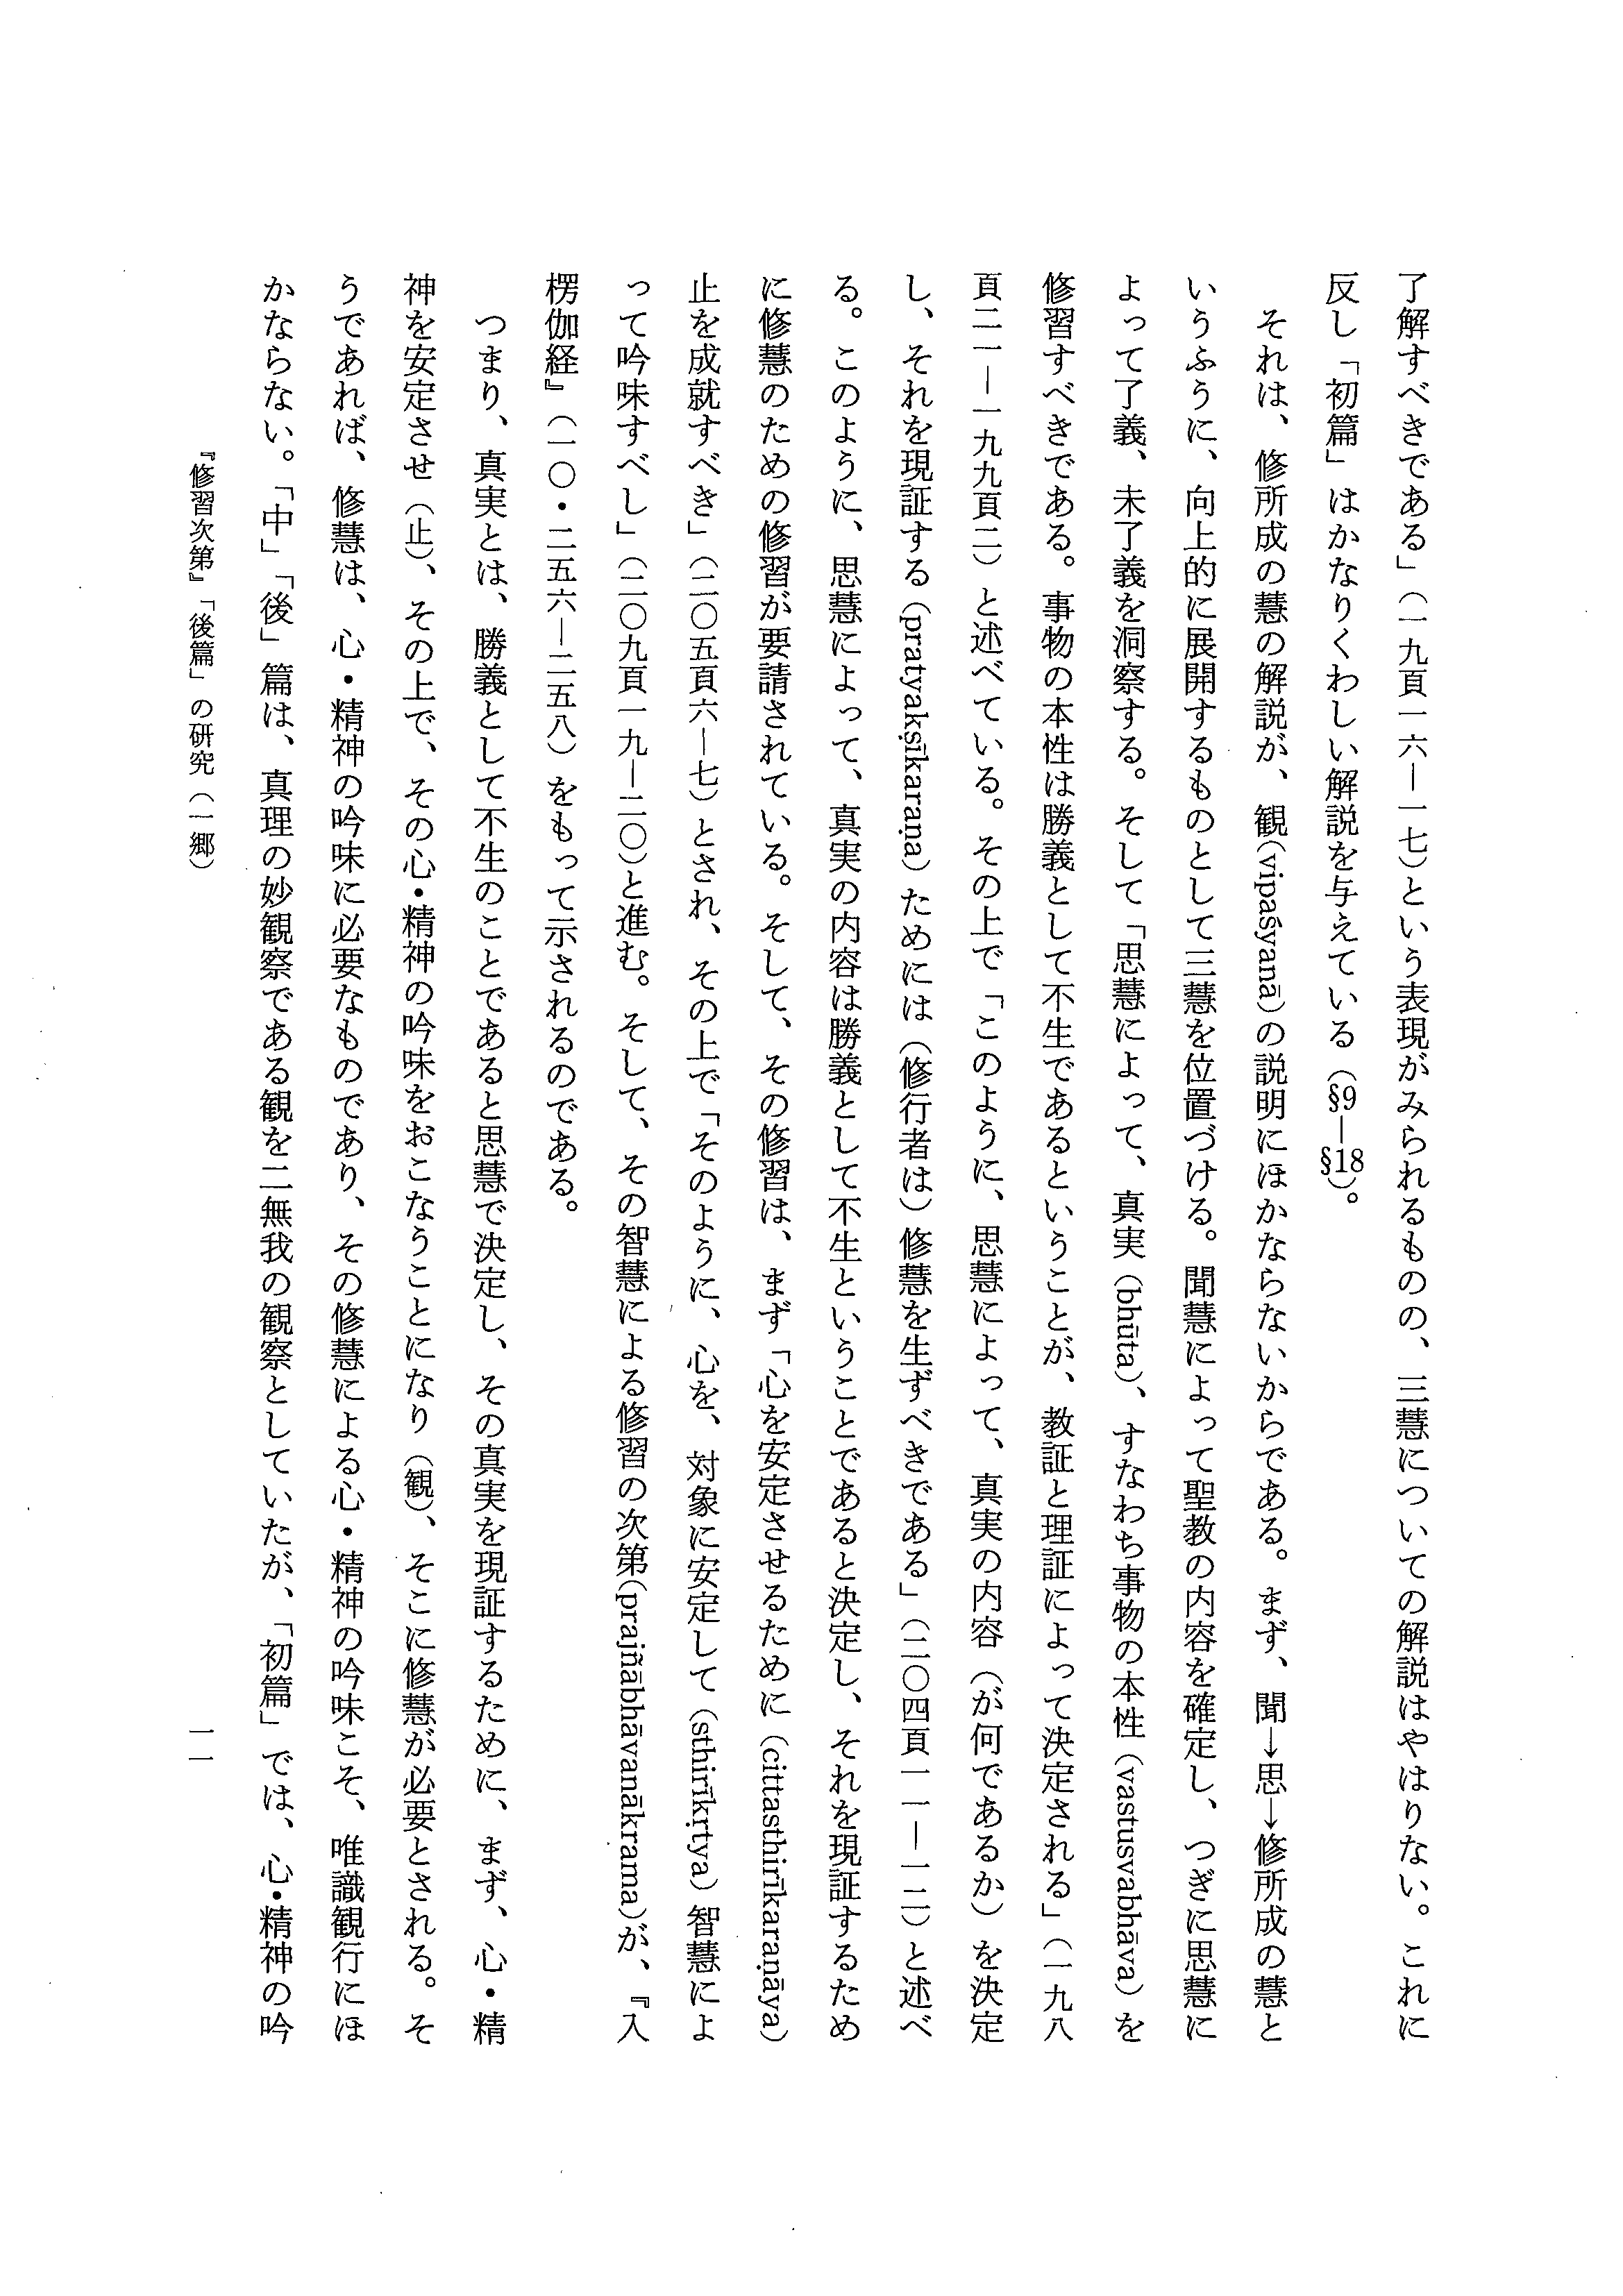 了解すべきである」（一九頁一六―一七）という表現がみられるものの、三慧についての解説はやはりない。これに
反し「初篇」はかなりくわしい解説を与えている（§9―§18）。
　それは、修所成の慧の解説が、観（vipaśyanā）の説明にほかならないからである。まず、聞→思→修所成の慧と
いうふうに、向上的に展開するものとして三慧を位置づける。聞慧によって聖教の内容を確定し、つぎに思慧に
よって了義、未了義を洞察する。そして「思慧によって、真実（bhūta）、すなわち事物の本性（vastusvabhāva）を
修習すべきである。事物の本性は勝義として不生であるということが、教証と理証によって決定される」（一九八
頁二一―一九九頁二）と述べている。その上で「このように、思慧によって、真実の内容（が何であるか）を決定
し、それを現証する（pratyakṣīkaraṇa）ためには（修行者は）修慧を生ずべきである」（二〇四頁一一―一二）と述べ
る。このように、思慧によって、真実の内容は勝義として不生ということであると決定し、それを現証するため
に修慧のための修習が要請されている。そして、その修習は、まず「心を安定させるために（cittasthirīkaraṇāya）
止を成就すべき」（二〇五頁六―七）とされ、その上で「そのように、心を、対象に安定して（sthirīkṛtya）智慧によ
って吟味すべし」（二〇九頁一九―二〇）と進む。そして、その智慧による修習の次第（prajñābhāvanākrama）が、『入
楞伽経』（一〇・二五六―二五八）をもって示されるのである。
　つまり、真実とは、勝義として不生のことであると思慧で決定し、その真実を現証するために、まず、心・精
神を安定させ（止）、その上で、その心・精神の吟味をおこなうことになり（観）、そこに修慧が必要とされる。そ
うであれば、修慧は、心・精神の吟味に必要なものであり、その修慧による心・精神の吟味こそ、唯識観行にほ
かならない。「中」「後」篇は、真理の妙観察である観を二無我の観察としていたが、「初篇」では、心・精神の吟
『修習次第』「後篇」の研究（一郷）
一一